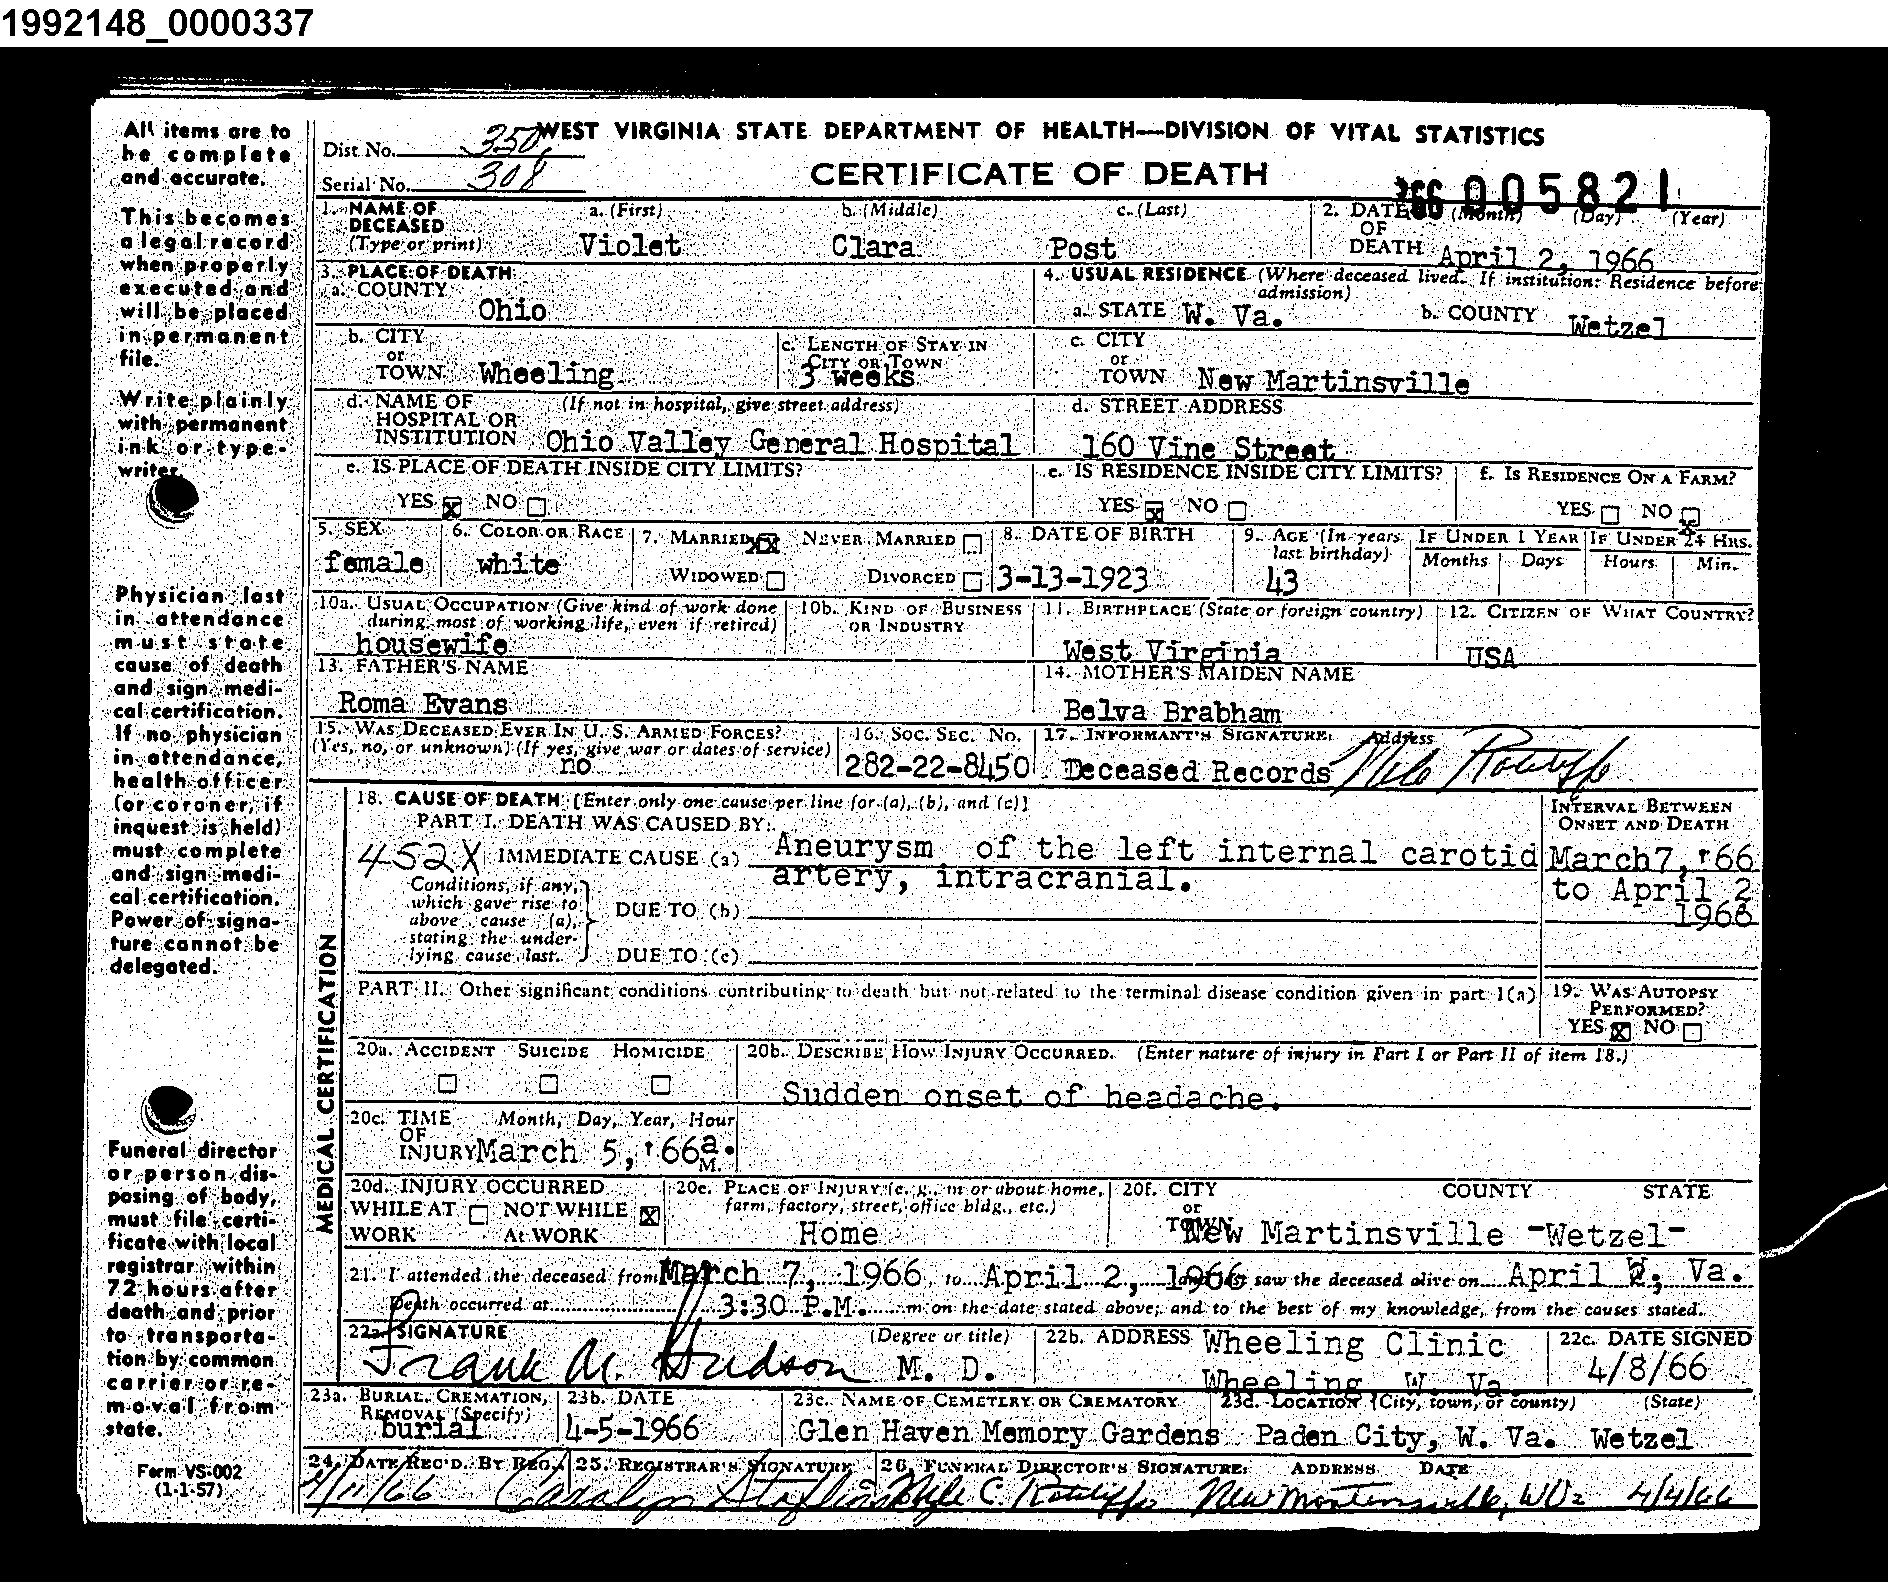 1992148_0000337
All items are to
be complete
and accurate.
This becomes
a legal record
when properly
executed and
will be placed
in permanent
file.
Write plainly
with permanent
ink or type-
writer.
Physician last
in attendance
must state
cause of death
and sign medi-
cal certification.
If no physician
in attendance,
health officer
(or coroner, if
inquest is held)
must complete
and sign medi-
cal certification.
Power of signa-
ture cannot be
delegated.
Funeral director
or person dis-
posing of body,
must file certi-
ficate with local
registrar within
72 hours after
death and prior
to transporta-
tion by common
carrier or re-
moval from
state.
Form VS-002
(1-1-57)
WEST VIRGINIA STATE DEPARTMENT OF HEALTH—DIVISION OF VITAL STATISTICS
Dist. No. 350
CERTIFICATE OF DEATH
Serial No. 308
66 005821
1. NAME OF DECEASED (Type or print) a. (First) b. (Middle) c. (Last)
Violet Clara Post
2. DATE OF DEATH (Month) (Day) (Year)
April 2, 1966
3. PLACE OF DEATH
a. COUNTY
Ohio
4. USUAL RESIDENCE (Where deceased lived. If institution: Residence before admission)
a. STATE W. Va. b. COUNTY Wetzel
b. CITY or TOWN Wheeling
c. LENGTH OF STAY IN CITY OR TOWN
3 weeks
c. CITY or TOWN New Martinsville
d. NAME OF HOSPITAL OR INSTITUTION (If not in hospital, give street address)
Ohio Valley General Hospital
d. STREET ADDRESS
160 Vine Street
e. IS PLACE OF DEATH INSIDE CITY LIMITS?
YES X NO
e. IS RESIDENCE INSIDE CITY LIMITS?
YES X NO
f. IS RESIDENCE ON A FARM?
YES NO X
5. SEX
female
6. COLOR OR RACE
white
7. MARRIED XX NEVER MARRIED
WIDOWED DIVORCED
8. DATE OF BIRTH
3-13-1923
9. AGE (In years last birthday)
43
IF UNDER 1 YEAR
Months Days
IF UNDER 24 HRS.
Hours Min.
10a. USUAL OCCUPATION (Give kind of work done during most of working life, even if retired)
housewife
10b. KIND OF BUSINESS OR INDUSTRY
11. BIRTHPLACE (State or foreign country)
West Virginia
12. CITIZEN OF WHAT COUNTRY?
USA
13. FATHER'S NAME
Roma Evans
14. MOTHER'S MAIDEN NAME
Belva Brabham
15. WAS DECEASED EVER IN U. S. ARMED FORCES?
(Yes, no, or unknown) (If yes, give war or dates of service)
no
16. SOC. SEC. NO.
282-22-8450
17. INFORMANT'S SIGNATURE: Address
Deceased Records
MEDICAL CERTIFICATION
18. CAUSE OF DEATH [Enter only one cause per line for (a), (b), and (c)]
PART I. DEATH WAS CAUSED BY:
452X IMMEDIATE CAUSE (a) Aneurysm of the left internal carotid
artery, intracranial.
Conditions, if any, which gave rise to above cause (a), stating the under-lying cause last.
DUE TO (b)
DUE TO (c)
INTERVAL BETWEEN ONSET AND DEATH
March7,'66
to April 2
1966
PART II. Other significant conditions contributing to death but not related to the terminal disease condition given in part 1(a)
19. WAS AUTOPSY PERFORMED?
YES X NO
20a. ACCIDENT SUICIDE HOMICIDE
20b. DESCRIBE HOW INJURY OCCURRED. (Enter nature of injury in Part I or Part II of item 18.)
Sudden onset of headache.
20c. TIME OF INJURY Month, Day, Year, Hour
March 5,'66 a. M.
20d. INJURY OCCURRED
WHILE AT WORK NOT WHILE AT WORK X
20e. PLACE OF INJURY (e. g., in or about home, farm, factory, street, office bldg., etc.)
Home
20f. CITY or TOWN COUNTY STATE
New Martinsville -Wetzel-
21. I attended the deceased from March 7, 1966 to April 2, 1966 and last saw the deceased alive on April 2, Va.
Death occurred at 3:30 P.M. m on the date stated above; and to the best of my knowledge, from the causes stated.
22a. SIGNATURE (Degree or title)
Frank M. Hudson M. D.
22b. ADDRESS Wheeling Clinic
Wheeling W. Va.
22c. DATE SIGNED
4/8/66
23a. BURIAL, CREMATION, REMOVAL (Specify)
burial
23b. DATE
4-5-1966
23c. NAME OF CEMETERY OR CREMATORY
Glen Haven Memory Gardens
23d. LOCATION (City, town, or county) (State)
Paden City, W. Va. Wetzel
24. DATE REC'D. BY REG.
4/11/66
25. REGISTRAR'S SIGNATURE
Carolyn
26. FUNERAL DIRECTOR'S SIGNATURE: ADDRESS DATE
Lyle C. New Martinsville, WVa 4/4/66